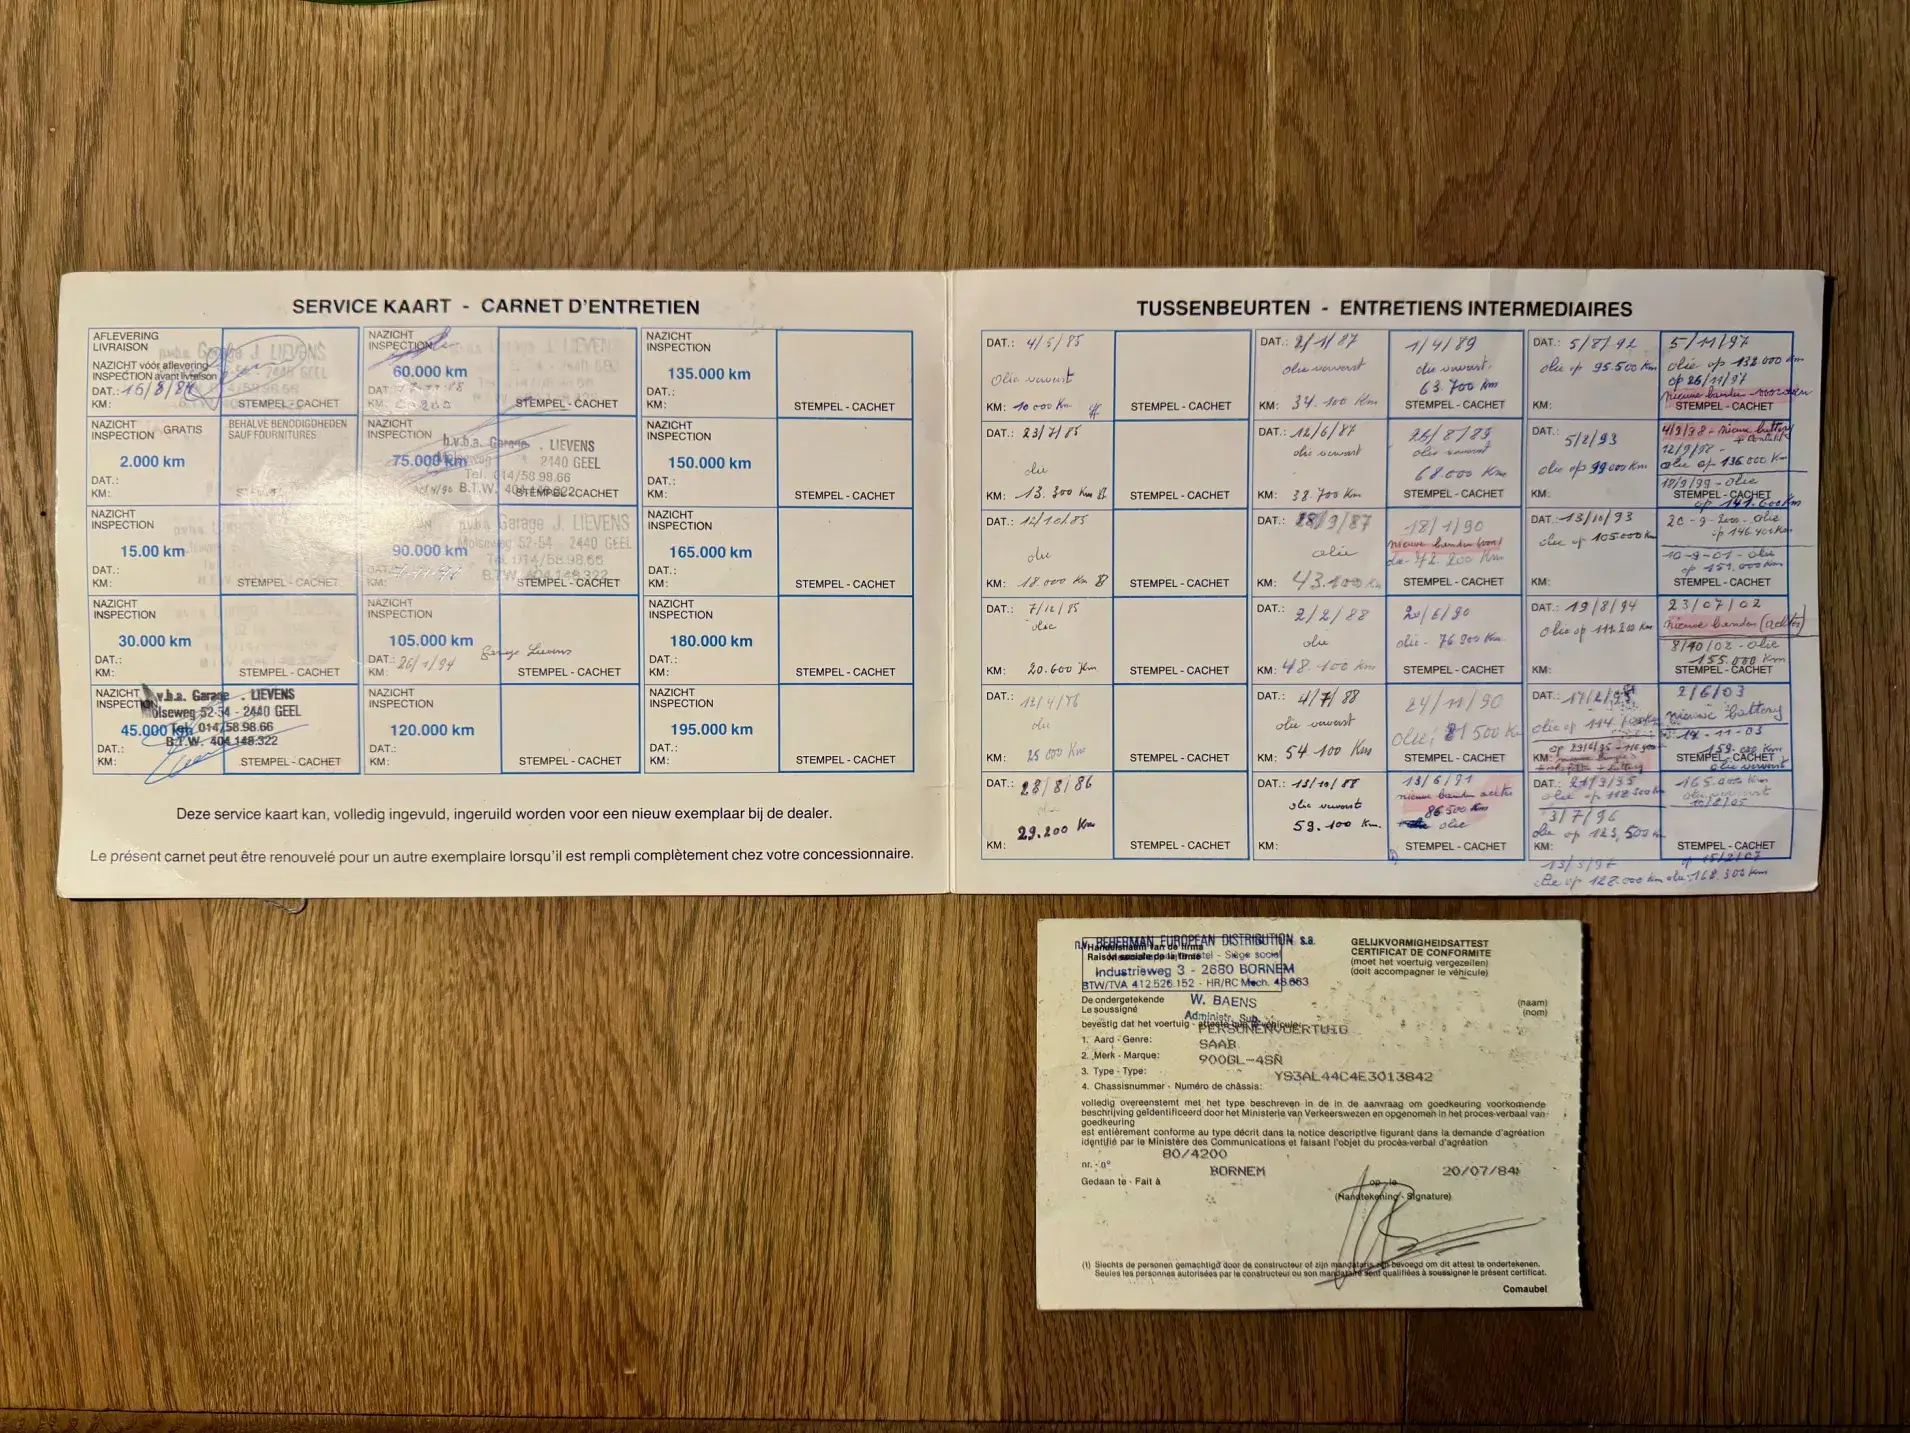 SERVICE KAART - CARNET D'ENTRETIEN
AFLEVERING
LIVRAISON
NAZICHT vóór aflevering
INSPECTION avant livraison
DAT.: 16/8/84
KM:
Garage J. LIEVENS
2440 GEEL
STEMPEL - CACHET
NAZICHT
INSPECTION GRATIS
2.000 km
DAT.:
KM:
BEHALVE BENODIGDHEDEN
SAUF FOURNITURES
NAZICHT
INSPECTION
15.00 km
DAT.:
KM:
STEMPEL - CACHET
NAZICHT
INSPECTION
30.000 km
DAT.:
KM:
STEMPEL - CACHET
NAZICHT
INSPECTION
45.000 km
DAT.:
KM:
b.v.b.a. Garage J. LIEVENS
Molseweg 52-54 - 2440 GEEL
Tel. 014/58.98.66
B.T.W. 404.148.322
STEMPEL - CACHET
NAZICHT
INSPECTION
60.000 km
DAT.
KM:
STEMPEL - CACHET
NAZICHT
INSPECTION
75.000 km
b.v.b.a. Garage . LIEVENS
Molseweg 2440 GEEL
Tel. 014/58.98.66
B.T.W. 404.148.322
STEMPEL - CACHET
90.000 km
DAT.
KM:
p.v.b.a Garage J. LIEVENS
Molseweg 52-54 - 2440 GEEL
Tel. 014/58.98.66
B.T.W. 404.148.322
STEMPEL - CACHET
NAZICHT
INSPECTION
105.000 km
DAT.: 26/1/94
KM:
Garage Lievens
STEMPEL - CACHET
NAZICHT
INSPECTION
120.000 km
DAT.:
KM:
STEMPEL - CACHET
NAZICHT
INSPECTION
135.000 km
DAT.:
KM:
STEMPEL - CACHET
NAZICHT
INSPECTION
150.000 km
DAT.:
KM:
STEMPEL - CACHET
NAZICHT
INSPECTION
165.000 km
DAT.:
KM:
STEMPEL - CACHET
NAZICHT
INSPECTION
180.000 km
DAT.:
KM:
STEMPEL - CACHET
NAZICHT
INSPECTION
195.000 km
DAT.:
KM:
STEMPEL - CACHET
Deze service kaart kan, volledig ingevuld, ingeruild worden voor een nieuw exemplaar bij de dealer.
Le présent carnet peut être renouvelé pour un autre exemplaire lorsqu'il est rempli complètement chez votre concessionnaire.
TUSSENBEURTEN - ENTRETIENS INTERMEDIAIRES
DAT.: 4/5/85
olie ververst
KM: 10 000 Km
STEMPEL - CACHET
DAT.: 23/7/85
olie
KM: 13.300 Km
STEMPEL - CACHET
DAT.: 12/10/85
olie
KM: 18.000 Km
STEMPEL - CACHET
DAT.: 7/12/85
olie
KM: 20.600 Km
STEMPEL - CACHET
DAT.: 12/4/86
olie
KM: 25 000 Km
STEMPEL - CACHET
DAT.: 28/8/86
olie
KM: 29.200 Km
STEMPEL - CACHET
DAT.: 2/1/87
olie ververst
KM: 34.100 Km
DAT.: 12/6/87
olie ververst
KM: 38.700 Km
DAT.: 28/9/87
olie
KM: 43.200 Km
DAT.: 2/2/88
olie
KM: 48.100 Km
DAT.: 4/7/88
olie ververst
KM: 54 100 Km
DAT.: 13/10/88
olie ververst
59.100 Km.
KM:
1/4/89
olie ververst.
63.700 Km
STEMPEL - CACHET
25/8/89
olie ververst
68.000 Km
STEMPEL - CACHET
18/1/90
nieuwe banden
olie 72.200 Km
STEMPEL - CACHET
20/6/90
olie - 76 900 Km.
STEMPEL - CACHET
24/11/90
olie: 81 500 Km
STEMPEL - CACHET
13/6/91
nieuwe banden achter
86.500 Km
olie
STEMPEL - CACHET
DAT.: 5/8/92
olie op 95.500 Km
KM:
DAT.: 5/2/93
olie op 99000 Km
KM:
DAT.: 13/10/93
olie op 105.000 Km
KM:
DAT.: 19/8/94
olie op 111.200 Km
KM:
DAT.: 17/2/95
olie op 114.
KM:
DAT.:
olie op
3/7/96
olie op 123,500 Km
KM:
olie op 128.000 Km
5/11/97
olie op 132 000 Km
op 26/11/97
nieuwe banden voor
STEMPEL - CACHET
4/9/98 - nieuwe battery
12/9/98 -
olie op 136.000 Km
18/9/99 - olie
STEMPEL - CACHET
op 141.600 Km
20-9-2000 - olie
op 146.400 Km
10-9-01 - olie
op 151.000 Km
STEMPEL - CACHET
23/07/02
nieuwe banden (achter)
8/10/02 - olie
155.000 Km
STEMPEL - CACHET
2/6/03
nieuwe battery
14-11-03
159.000 Km
STEMPEL - CACHET
olie ververst
165.000 Km
olie ververst
STEMPEL - CACHET
op 15/2/07
olie: 168.300 Km
n.v. BEHERMAN EUROPEAN DISTRIBUTION s.a.
Handelsnaam van de firma
Raison sociale de la firme
Siège social
Industrieweg 3 - 2680 BORNEM
BTW/TVA 412.526.152 - HR/RC Mech. 48.663
GELIJKVORMIGHEIDSATTEST
CERTIFICAT DE CONFORMITE
(moet het voertuig vergezellen)
(doit accompagner le véhicule)
De ondergetekende W. BAENS (naam)
Le soussigné (nom)
Administr. Sup.
bevestig dat het voertuig - atteste que le véhicule:
1. Aard - Genre: PERSONENVOERTUIG
2. Merk - Marque: SAAB
3. Type - Type: 900GL-4SN
4. Chassisnummer - Numéro de châssis: YS3AL44C4E3013842
volledig overeenstemt met het type beschreven in de in de aanvraag om goedkeuring voorkomende
beschrijving geïdentificeerd door het Ministerie van Verkeerswezen en opgenomen in het proces-verbaal van
goedkeuring
est entièrement conforme au type décrit dans la notice descriptive figurant dans la demande d'agréation
identifié par le Ministère des Communications et faisant l'objet du procès-verbal d'agréation
nr. - n° 80/4200
Gedaan te - Fait à BORNEM op - le 20/07/84
(Handtekening - Signature)
(1) Slechts de personen gemachtigd door de constructeur of zijn mandataris zijn bevoegd om dit attest te ondertekenen.
Seules les personnes autorisées par le constructeur ou son mandataire sont qualifiées à soussigner le présent certificat.
Comaubel